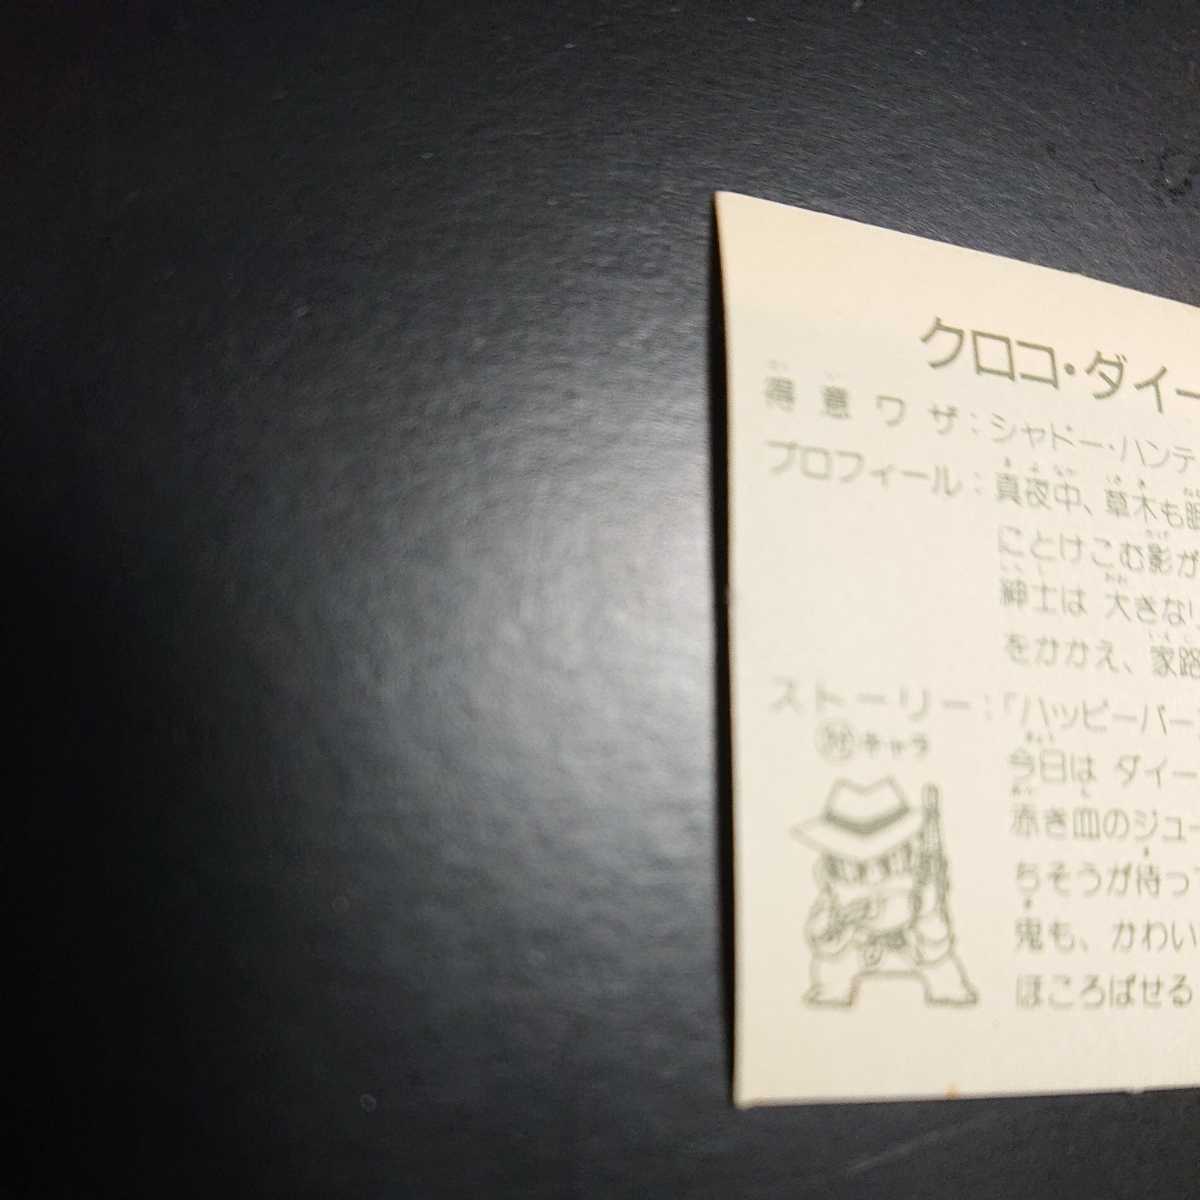 クロコ・ダイー
得意ワザ：シャドー・ハンテ
プロフィール：真夜中、草木も眠
にとけこむ影が
紳士は 大きな
をかかえ、家路
ストーリー：「ハッピーバー
キャラ
今日は ダイー
赤き血のジュー
ちそうが待っ
鬼も、かわい
ほころばせる